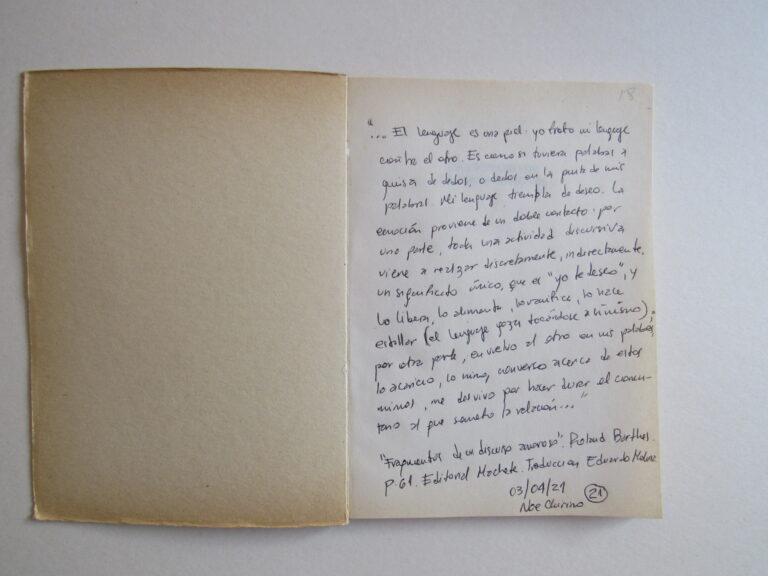 18
"... El lenguaje es una piel: yo froto mi lenguaje
contra el otro. Es como si tuviera palabras a
guisa de dedos, o dedos en la punta de mis
palabras. Mi lenguaje tiembla de deseo. La
emoción proviene de un doble contacto: por
una parte, toda una actividad discursiva
viene a realzar discretamente, indirectamente,
un significado único, que es "yo te deseo", y
lo libera, lo alimenta, lo ramifica, lo hace
estallar (el lenguaje goza tocándose a sí mismo);
por otra parte, envuelvo al otro en mis palabras,
lo acaricio, lo mimo, converso acerca de estos
mimos, me desvivo por hacer durar el comen-
tario al que someto la relación..."
"Fragmentos de un discurso amoroso". Roland Barthes.
P. 61. Editorial Machete. Traducción Eduardo Molina
03/04/21
Noe Clarino 21